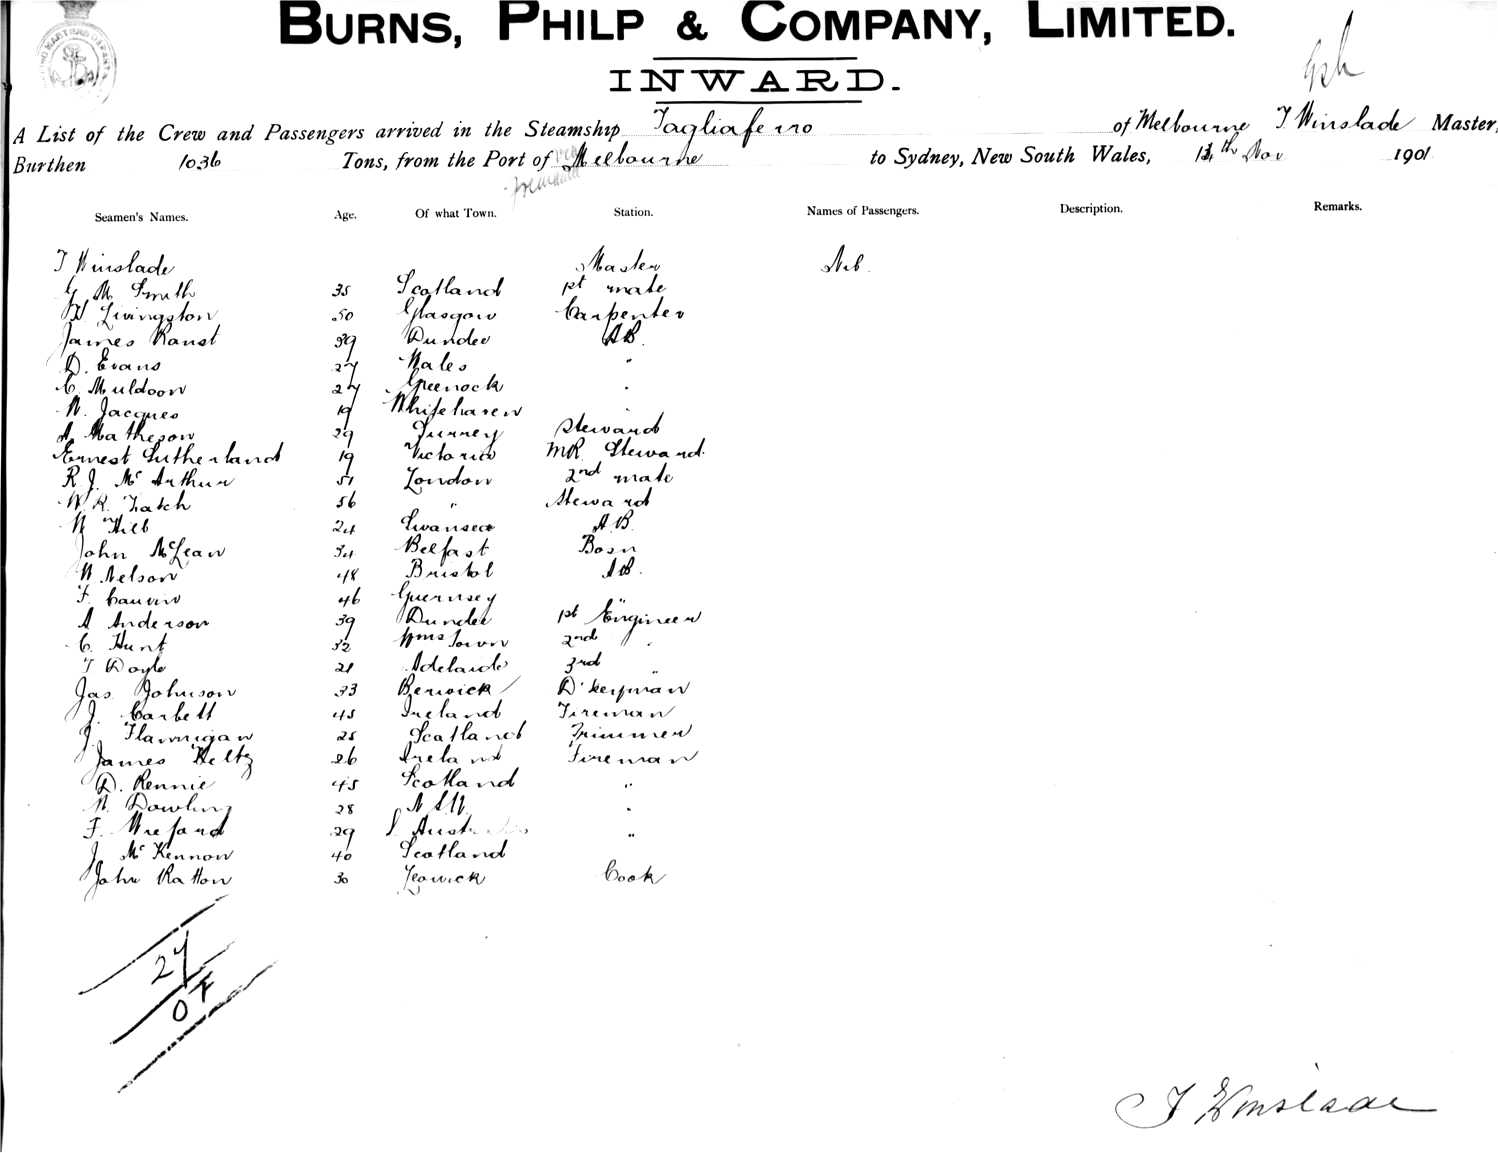 BURNS, PHILP & COMPANY, LIMITED.
INWARD.
A List of the Crew and Passengers arrived in the Steamship Tagliaferro of Melbourne T Winslade Master,
Burthen 1036 Tons, from the Port of Melbourne to Sydney, New South Wales, th Nov 1901
Seamen's Names. Age. Of what Town. Station. Names of Passengers. Description. Remarks.
T Winslade Master Nil.
G M Smith 35 Scotland 1st mate
W Livingston 50 Glasgow Carpenter
James Ranst 39 Dundee A B.
D. Evans 27 Wales "
C. Muldoon 27 Greenock "
W. Jacques 19 Whitehaven "
A Matheson 29 Surrey Steward
Ernest Sutherland 19 Victoria MR. Steward.
R J. Mc Arthur 51 London 2nd mate
W. R. Hatch 56 " Steward
W Hill 24 Swansea A.B.
John McLean 34 Belfast Bosn
W Nelson 48 Bristol A B.
F. Cauvin 46 Guernsey "
A Anderson 39 Dundee 1st Engineer
C. Hunt 32 Wms Town 2nd "
T Doyle 21 Adelaide 3rd "
Jas Johnson 33 Berwick D'keyman
J. Carbett 45 Ireland Fireman
J. Flannigan 25 Scotland Trimmer
James Keltz 26 Ireland Fireman
D. Rennie 45 Scotland "
W. Dowling 28 N S W. "
F. Wreford 29 S Australia "
J. Mc Kennow 40 Scotland
John Ratton 30 Cook
27
0
T Winslade